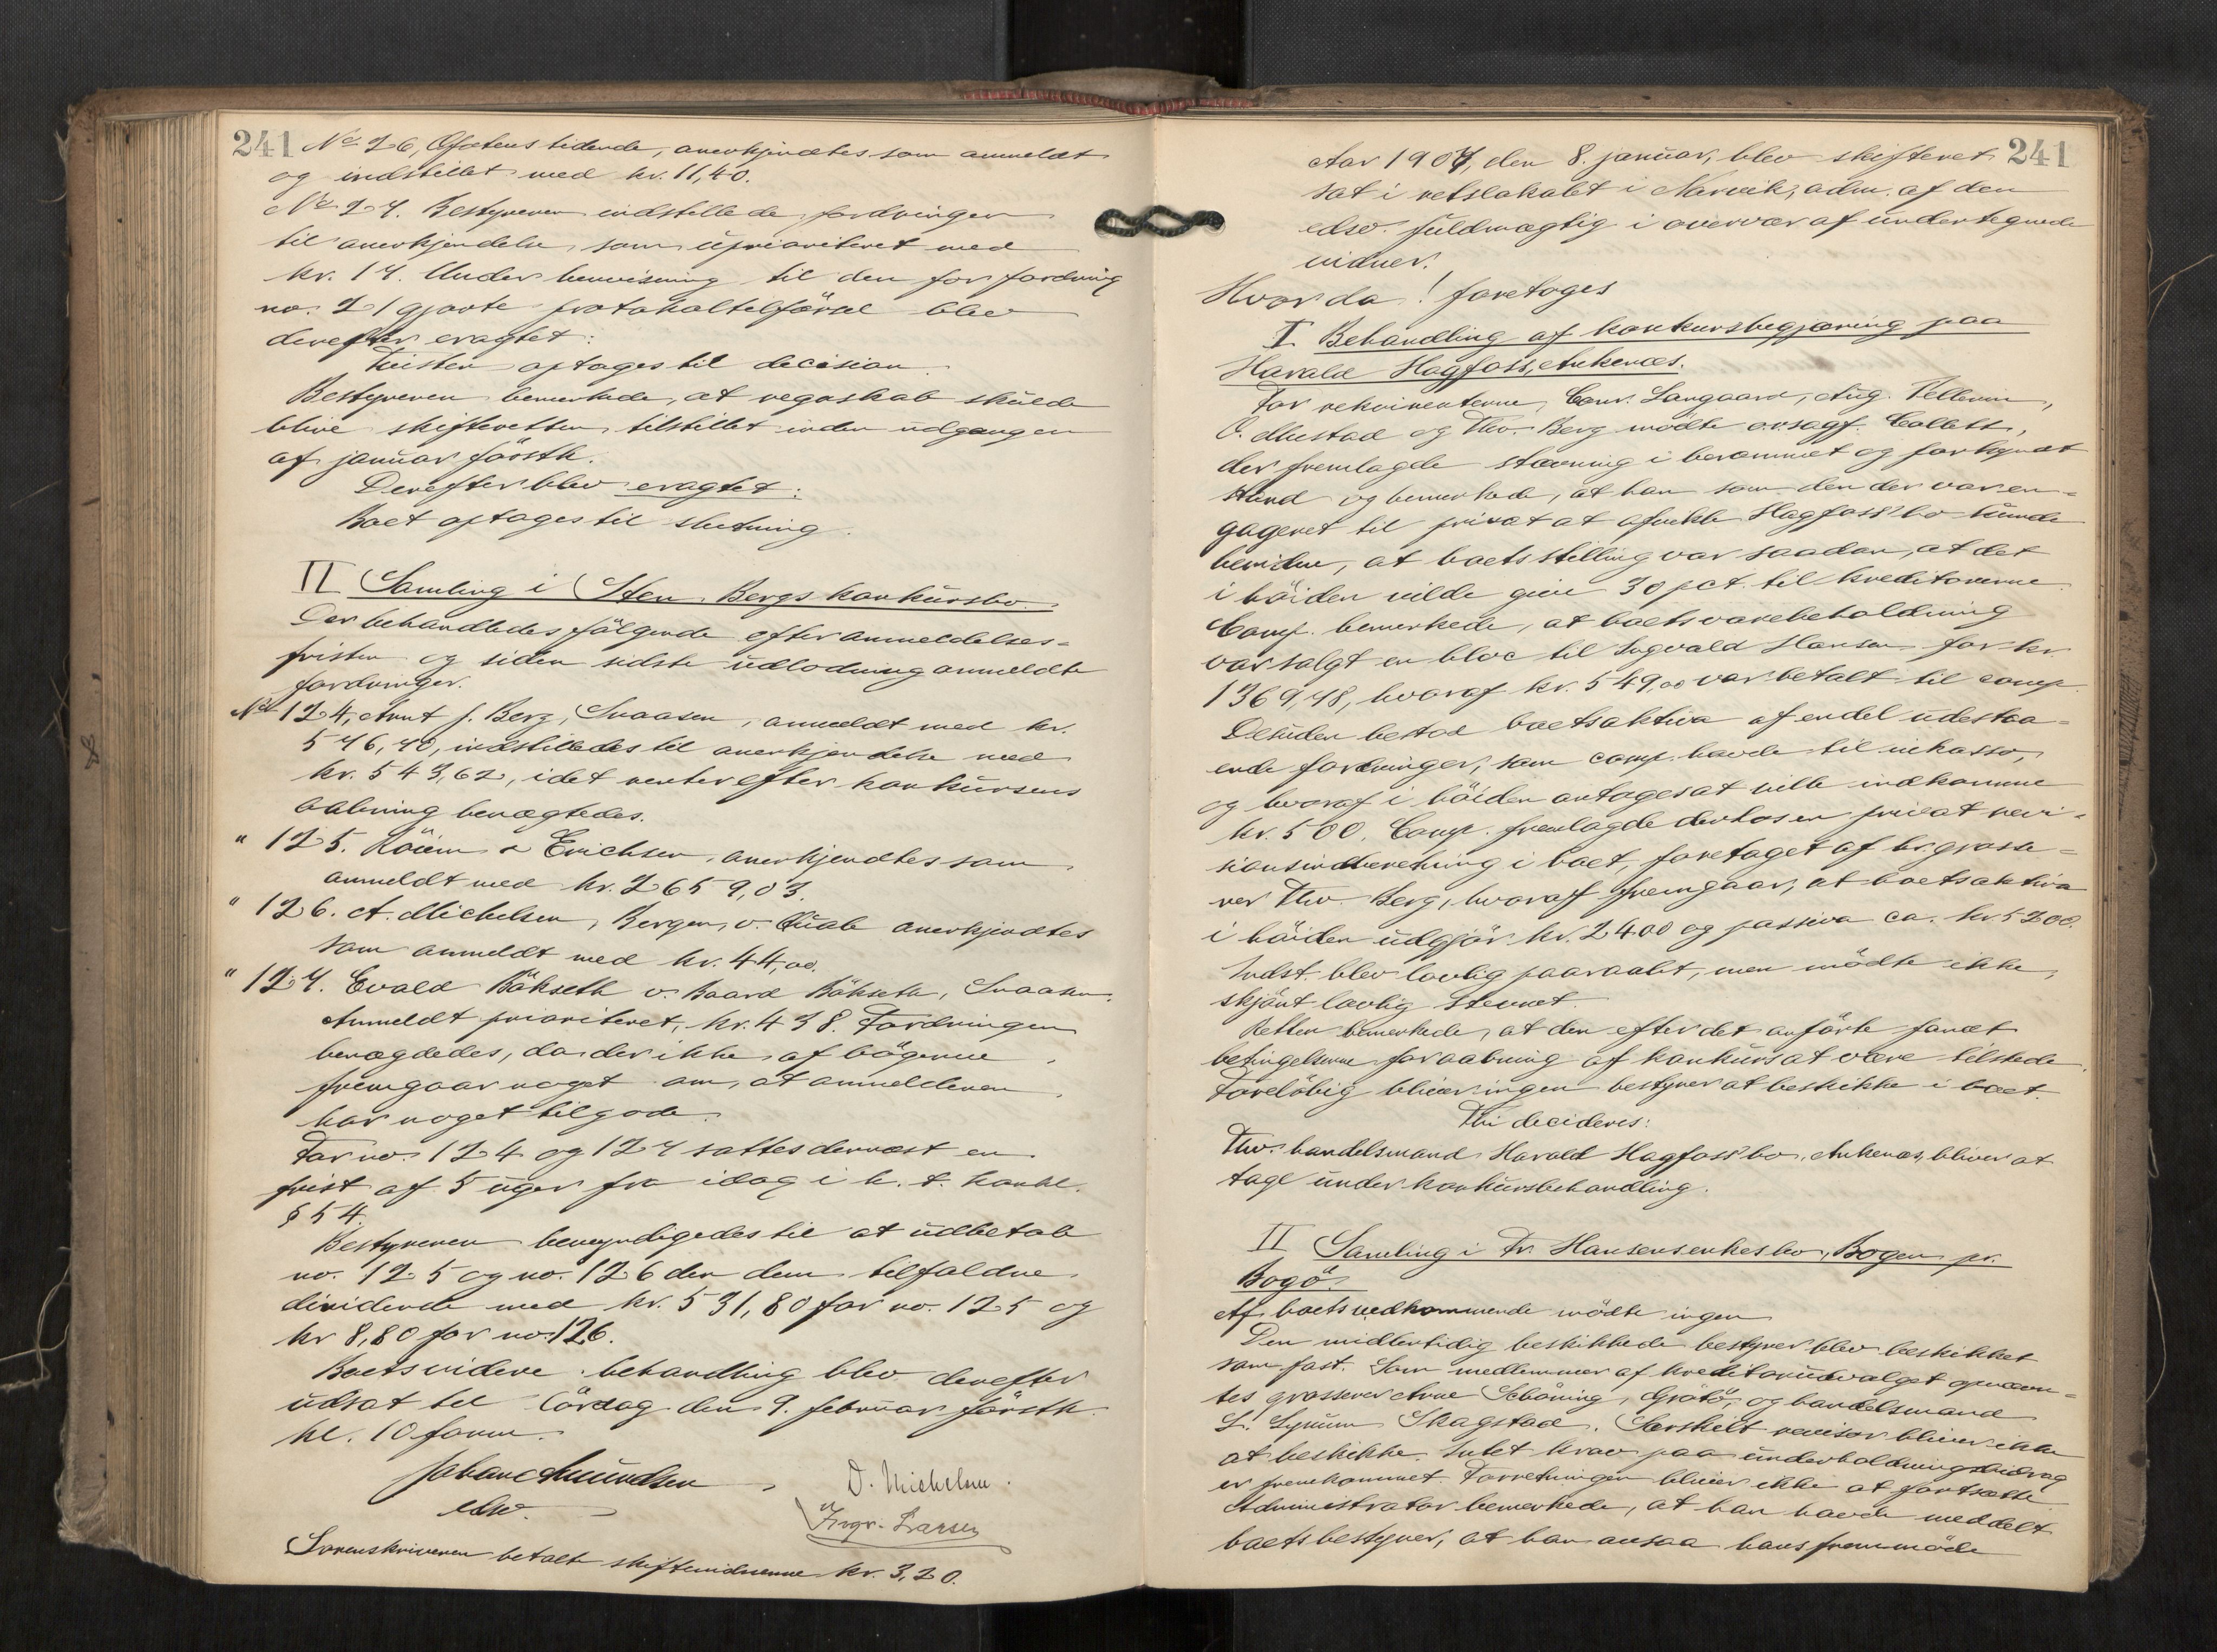 241 No 26, Ofotens tidende, anerkjendtes som anmeldt
og indstillet med kr. 11,40.
No 27. Bestyreren indstillede fordringen
til anerkjendelse som uprioriteret med
kr. 17. Under henvisning til den for fordring
no. 21 gjorte protokoltilførsel blev
derefter eragtet:
Tvisten optages til decision.
Bestyreren bemerkede, at regnskab skulde
blive skifteretten tilstillet inden udgangen
af januar førstk.
Derefter blev eragtet:
Boet optages til slutning.
II Samling i Sten. Bergs konkursbo.
Der behandledes følgende efter anmeldelses-
fristen og siden sidste udlodning anmeldte
fordringer.
No 124, Arnt J. Berg, Snaasen, anmeldt med kr.
546,40, indstilledes til anerkjendelse med
kr. 543,62, idet renter efter konkursens
aabning benægtedes.
" 125. & Erichsen, anerkjendtes som
anmeldt med kr. 2659,03.
" 126. A. Michelsen, Bergen, v. Quale anerkjendtes
som anmeldt med kr. 44,00.
" 127. Evald Bökseth v. Baard Bökseth, Snaasen.
Anmeldt prioriteret, kr. 438. Fordringen
benægdedes, da der ikke af bøgerne
fremgaar noget om, at anmelderen
har noget tilgode.
For no. 124 og 127 sattes dernæst en
frist af 5 uger fra idag i h. t. konkl.
§ 54.
Bestyreren bemyndigedes til at udbetale
no. 125 og no. 126 den dem tilfaldne
dividende med kr. 531,80 for no. 125 og
kr 8,80 for no. 126.
Boets videre behandling blev derefter
udsat til Lördag den 9. februar førstk.
kl. 10 form.
Johan Amundsen
edsv.
O. Michelsen.
Ingv. Larsen
Sorenskriveren betalt skiftevidnerne kr. 3,20.
241
Aar 1907, den 8. januar, blev skifteret
sat i retslokalet i Narvik, adm. af den
edsv. fuldmægtig i overvær af undertegnede
vidner.
Hvor da! foretoges
I. Behandling af konkursbegjæring paa
Harald Hagfoss, Ankenæs.
For rekvirenterne, Conr. Langaard, Aug. Pellerin,
O. Mustad og Thv. Berg mødte o.r.sagf. Collett,
der fremlagde stævning i berammet og forkyndt
stand og bemerkede, at han som den der var en-
gageret til privat at afvikle Hagfoss' bo kunde
bevidne, at boets stilling var saadan, at det
i høiden vilde give 30 pct. til kreditorerne.
Comp. bemerkede, at boets varebeholdning
var solgt en bloc til Sigvald Hansen for kr.
1369,48, hvoraf kr. 549,00 var betalt til comp.
Desuden bestod boets aktiva af endel udestaa-
ende fordringer, som comp. havde til inkasso,
og hvoraf i høiden antages at ville indkomme
kr. 500. Comp. fremlagde derhos en privat revi-
sionsindberetning i boet, foretaget af hr. grosse-
rer Thv. Berg, hvoraf fremgaar, at boets aktiva
i høiden udgjør kr. 2400 og passiva ca. kr. 5200.
Indst. blev lovlig paaraabt, men mødte ikke,
skjønt lovlig stevnet.
Retten bemerkede, at den efter det anførte fandt
betingelserne for aabning af konkurs at være tilstede.
Foreløbig bliver ingen bestyrer at beskikke i boet.
Thi decideres:
Thv. handelsmand Harald Hagfoss' bo, Ankenæs, bliver at
tage under konkursbehandling.
II Samling i Fr. Hansens enkes bo, Bogen pr.
Bogø.
Af boets vedkommende mødte ingen
Den midlertidig beskikkede bestyrer blev beskikket
som fast. Som medlemmer af kreditorudvalget opnævn-
tes grosserer Arne Schöning, Grøtø, og handelsmand
L. Skagstad. Særskilt revisor bliver ikke
at beskikke. Intet krav paa underholdningsbidrag
er fremkommet. Forretningen bliver ikke at fortsætte.
Administrator bemerkede, at han havde meddelt
boets bestyrer, at han ansaa hans fremmøde